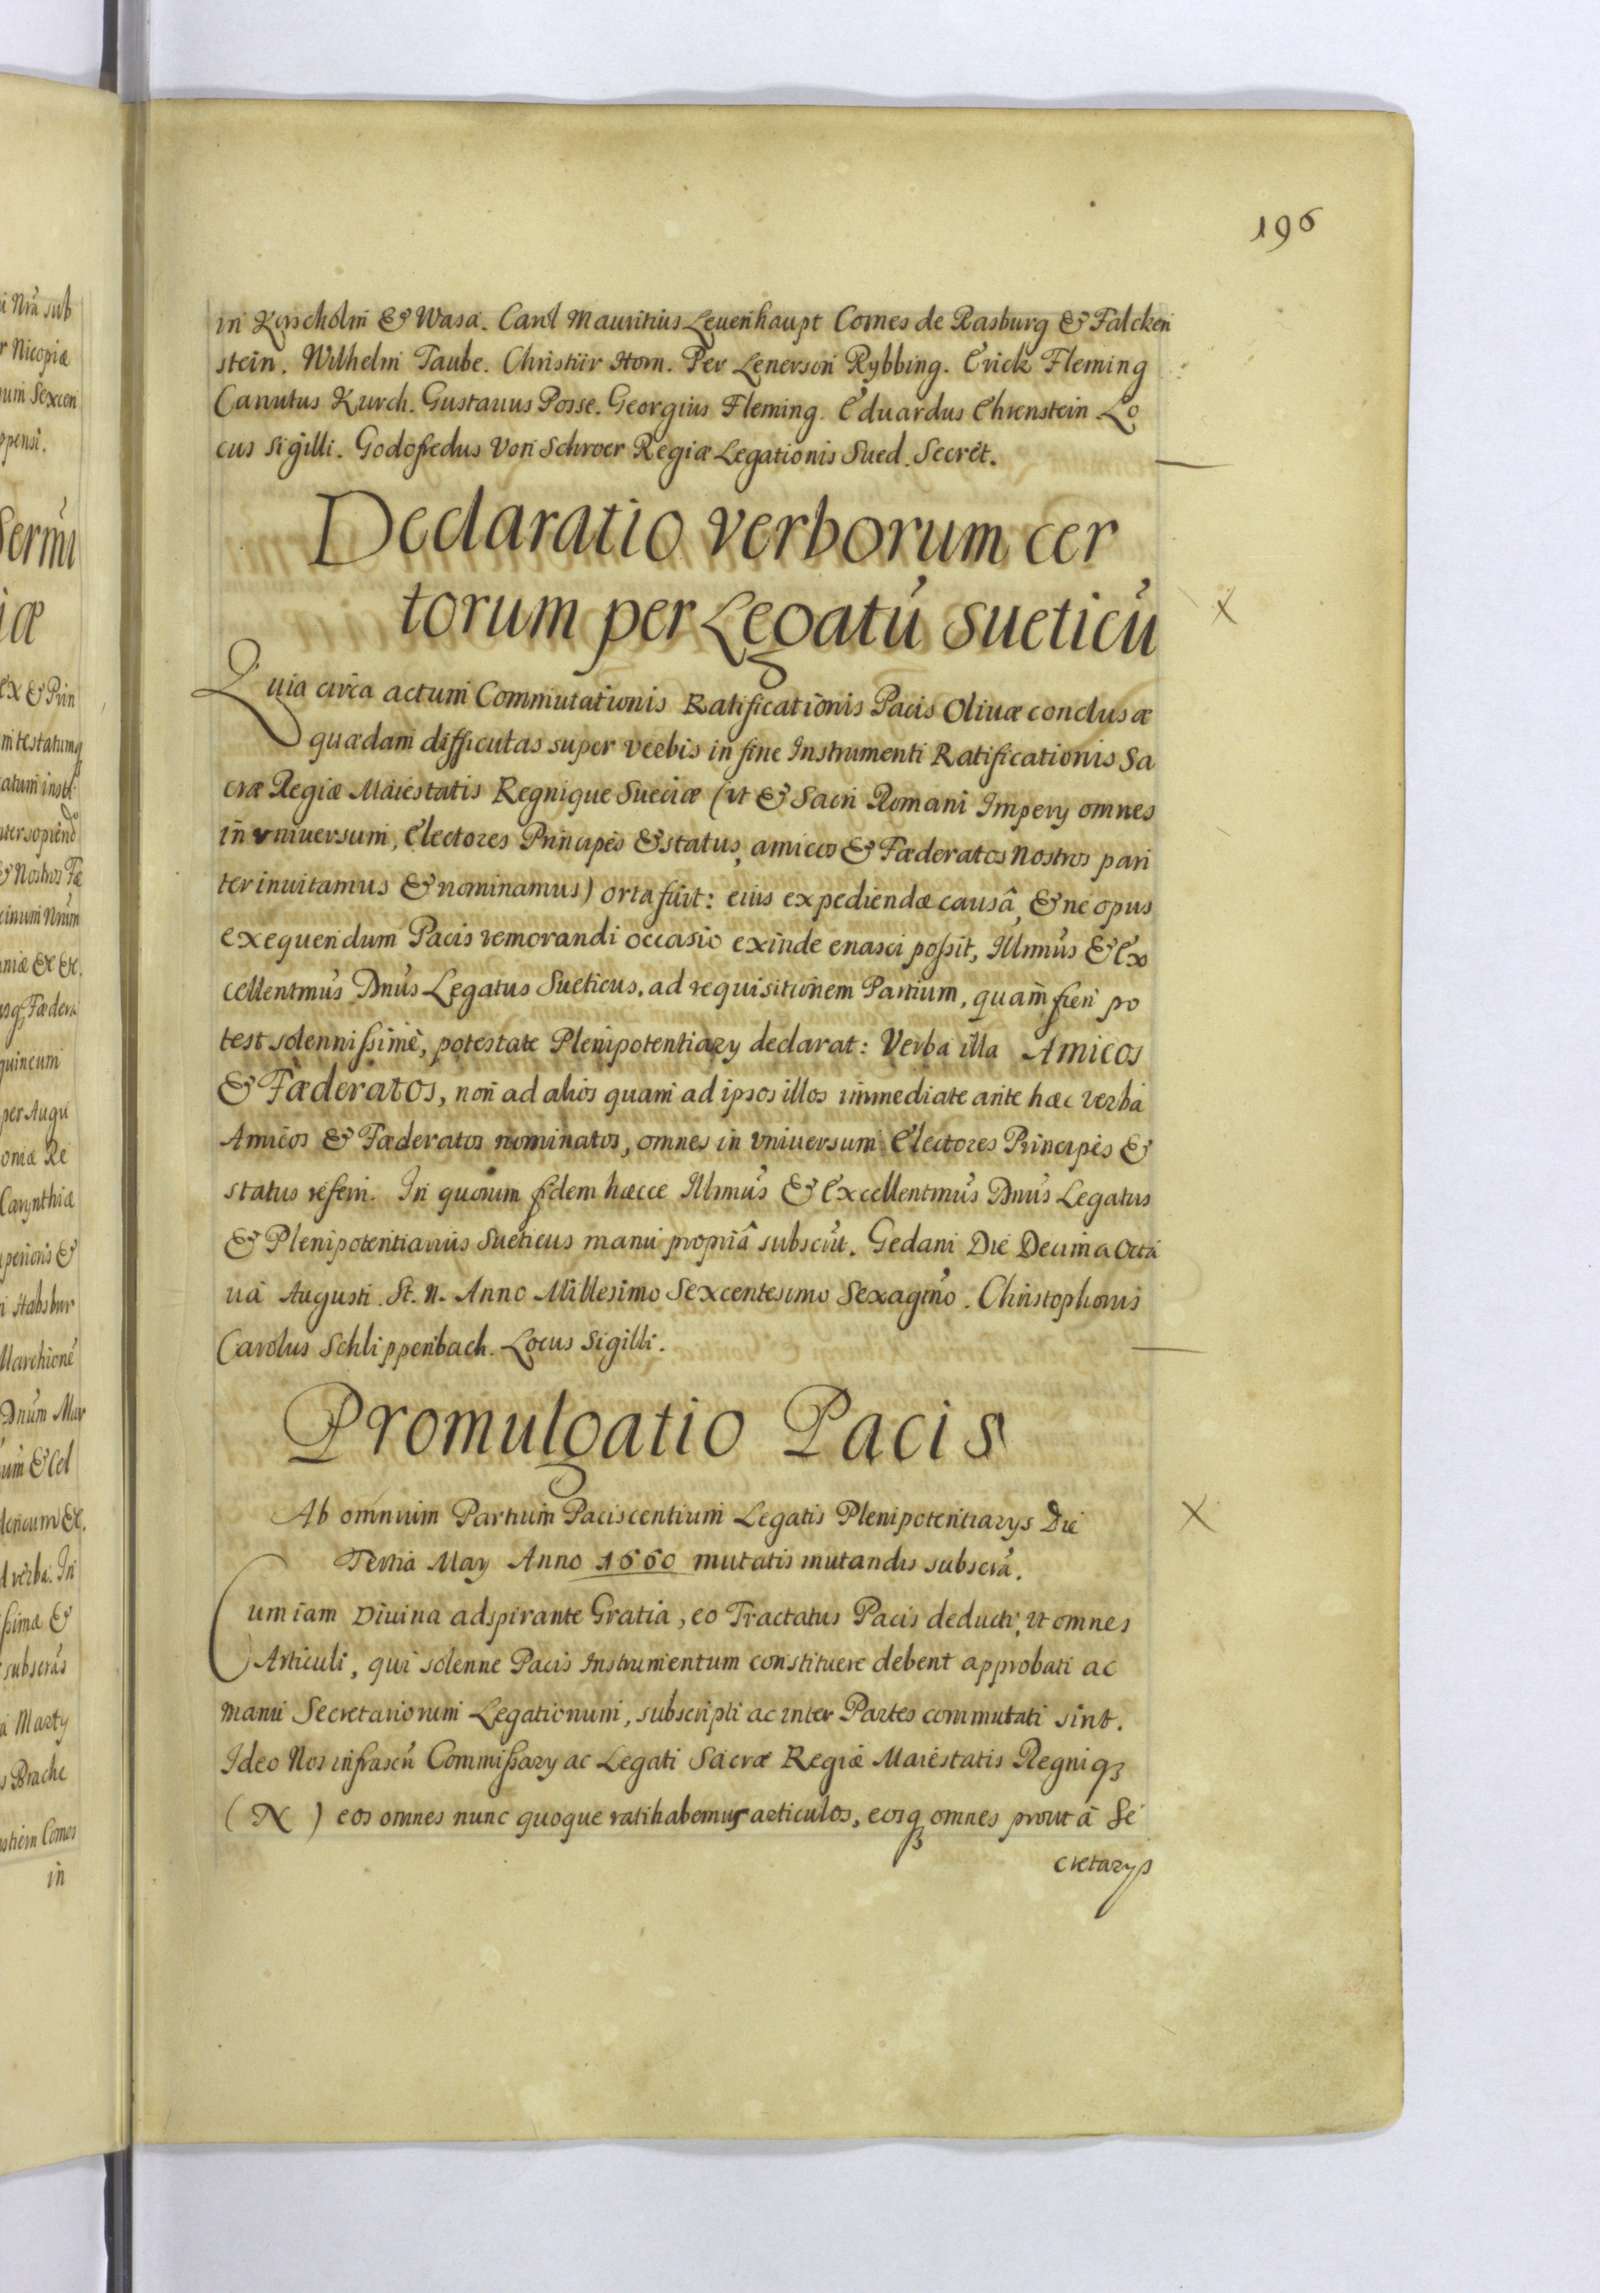 196
in Kyrcholm & Wasa. Carl Mauritius Leuenhaupt Comes de Rasburg & Falcken
stein. Wilhelm Taube. Christiir Horn. Per Lenerson Rybbing. Erick Fleming
Canutus Kurch. Gustauus Posse. Georgius Fleming. Eduardus Ehrenstein Lo
cus sigilli. Godofredus Von Schroer Regiæ Legationis Sued. Secrêt.
Declaratio verborum cer
torum per Legatú sueticú
Quia circa actum Commutationis Ratificationis Pacis Oliuæ conclusæ
quædam difficutas super verbis in fine Instrumenti Ratificationis Sa
cræ Regiæ Maiestatis Regnique Sueciæ (vt & Sacri Romani Impery omnes
in vniuersum, Electores Principes & status, amicos & Fæderatos Nostros pari
ter inuitamus & nominamus) orta fuit: eius expediendæ causâ, & ne opus
exequendum Pacis remorandi occasio exinde enasci possit, Illmús & Ex
cellentmús Dnús Legatus Sueticus, ad requisitionem Partium, quam fieri po
test solennissimè, potestate Plenipotentiary declarat: Verba illa Amicos
& Fæderatos, non ad alios quam ad ipsos illos immediate ante hæc verba
Amicos & Fæderatos nominatos, omnes in vniuersum Electores Principes &
status referri. In quorum fidem hæcce Illmús & Excellentmús Dnús Legatus
& Plenipotentiarius Sueticus manu propriâ subscút. Gedani Die Decima Octa
ua Augusti. St. N. Anno Millesimo Sexcentesimo Sexagmo. Christophorus
Carolus Schlippenbach. Locus Sigilli.
Promulgatio Pacis
Ab omnium Partium Paciscentium Legatis Plenipotentiarys Die
Tertia May Anno 1660 mutatis mutandis subscrá.
Cum iam Diuina adspirante Gratia, eo Tractatus Pacis deducti, vt omnes
Articuli, qui solenne Pacis Instrumentum constituere debent approbati ac
manu Secretariorum Legationum, subscripti ac inter Partes commutati sint.
Ideo Nos infrascrú Commissary ac Legati Sacræ Regiæ Maiestatis Regniq3
(N) eos omnes nunc quoque ratihabemus articulos, eosq3 omnes prout à Se
cretarys